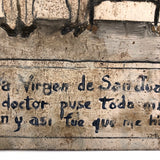 a Virgen de San Jua
doctor puse toda mi
n y asi fue que me h